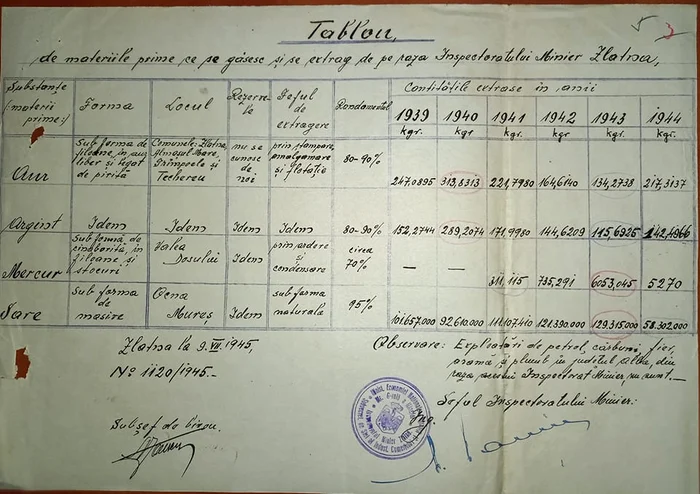 5 2
Tablou,
de materiile prime ce se găsesc și se extrag de pe raza Inspectoratului Minier Zlatna,
Substanțe (materii prime:) Forma Locul Rezervele Felul de extragere Randamentul Contitățile extrase în anii
1939 1940 1941 1942 1943 1944
kgr. kgr. kgr. kgr. kgr. kgr.
Aur Sub forma de filoane, în aur liber și legat de pirită Comunele: Zlatna, Almașul Mare, Trîmpoele și Techereu nu se cunosc de noi prin ștampare, amalgamare și flotație 80-90% 247,0895 313,8313 221,7980 164,6140 134,2738 217,3137
Argint Idem Idem Idem Idem 80-90% 152,2744 289,2074 171,9980 144,6209 115,6925 142,4966
Mercur Sub formă de cinabarită, în filoane și stocuri Valea Dosului Idem prin ardere și condensare circa 70% — — 311,115 735,291 6053,045 5270
Sare Sub forma de masive Ocna Mureș Idem sub forma naturală 95% 101.657.000 92.610.000 111.107.410 121.390.000 129.315.000 58.302.000
Zlatna la 9.VII.1945,
No 1120/1945.-
Observare: Exploatări de petrol, cărbuni, fier, aramă și plumb în județul Alba, din raza acestui Inspectorat Minier, nu sunt.-
Șeful Inspectoratului Minier:
Ing.
Subșef de birou.